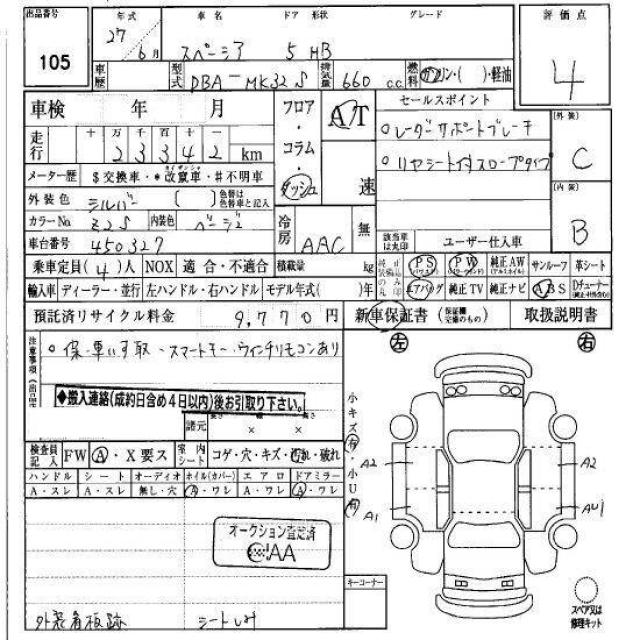 出品番号 年式 車名 ドア 形状 グレード 評価点
105 27 6月 スペーシア 5 HB 4
車歴 型式 DBA-MK32S 排気量 660 c.c. 燃料 ガソリン・( )・軽油
車検 年 月 フロア・コラム・ダッシュ AT セールスポイント
走行 十 万 千 百 十 一 ○レーダーサポートブレーキ 外装
2 3 3 4 2 km ○リヤシート付スロープタイプ C
メーター歴 $交換車・*改竄車・#不明車 速 内装
外装色 シルバー ( ) 色替は色替車と記入 B
カラーNo Z2S 内装色 ベージュ 冷房 AAC 無 該当車は丸印 ユーザー仕入車
車台番号 450327
乗車定員(4)人 NOX 適合・不適合 積載量 kg PS PW 純正AW サンルーフ 革シート
輸入車 ディーラー・並行 左ハンドル・右ハンドル モデル年式( )年 エアバッグ 純正TV 純正ナビ ABS
預託済リサイクル料金 9,770円 新車保証書 (保証継交換のもの) 取扱説明書
注意事項 ○保・車いす取・スマートキー・ウィンチリモコンあり 左 右
◆搬入連絡(成約日含め4日以内)後お引取り下さい。
諸元 長さ × 幅 × 高さ
小キズ有・小U有
検査員記入 FW A・X要ス 室内シート コゲ・穴・キズ・汚れ・破れ A2 A2
ハンドル シート オーディオ ホイル(カバー) エアロ ドアミラー
A・スレ A・スレ 無し・穴 A・ワレ A・ワレ A・ワレ A1 AU1
オークション査定済
JAA
キーコーナー
外装角板跡 シートしみ スペア又は修理キット